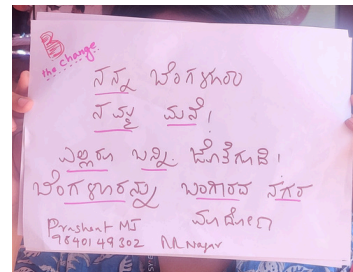 B the change
ನನ್ನ ಬೆಂಗಳೂರು
ನಮ್ಮ ಮನೆ!
ಎಲ್ಲರೂ ಬನ್ನಿ. ಜೊತೆಗೂಡಿ!
ಬೆಂಗಳೂರನ್ನು ಬಂಗಾರದ ನಗರ
ಮಾಡೋಣ
Prashant MJ
9840149302 RR Nagar